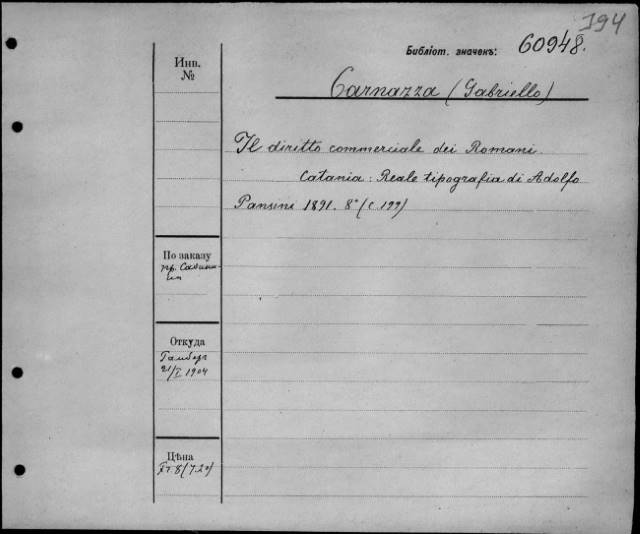 194
Библіот. значекъ: 60948.
Carnazza (Gabriello)
Инв.
№
Il diritto commerciale dei Romani.
Catania: Reale tipografia di Adolfo
Pansini 1891. 8° (c. 199)
По заказу
пр.
Откуда
21/I 1904
Цѣна
Fr. 8 (7.20)